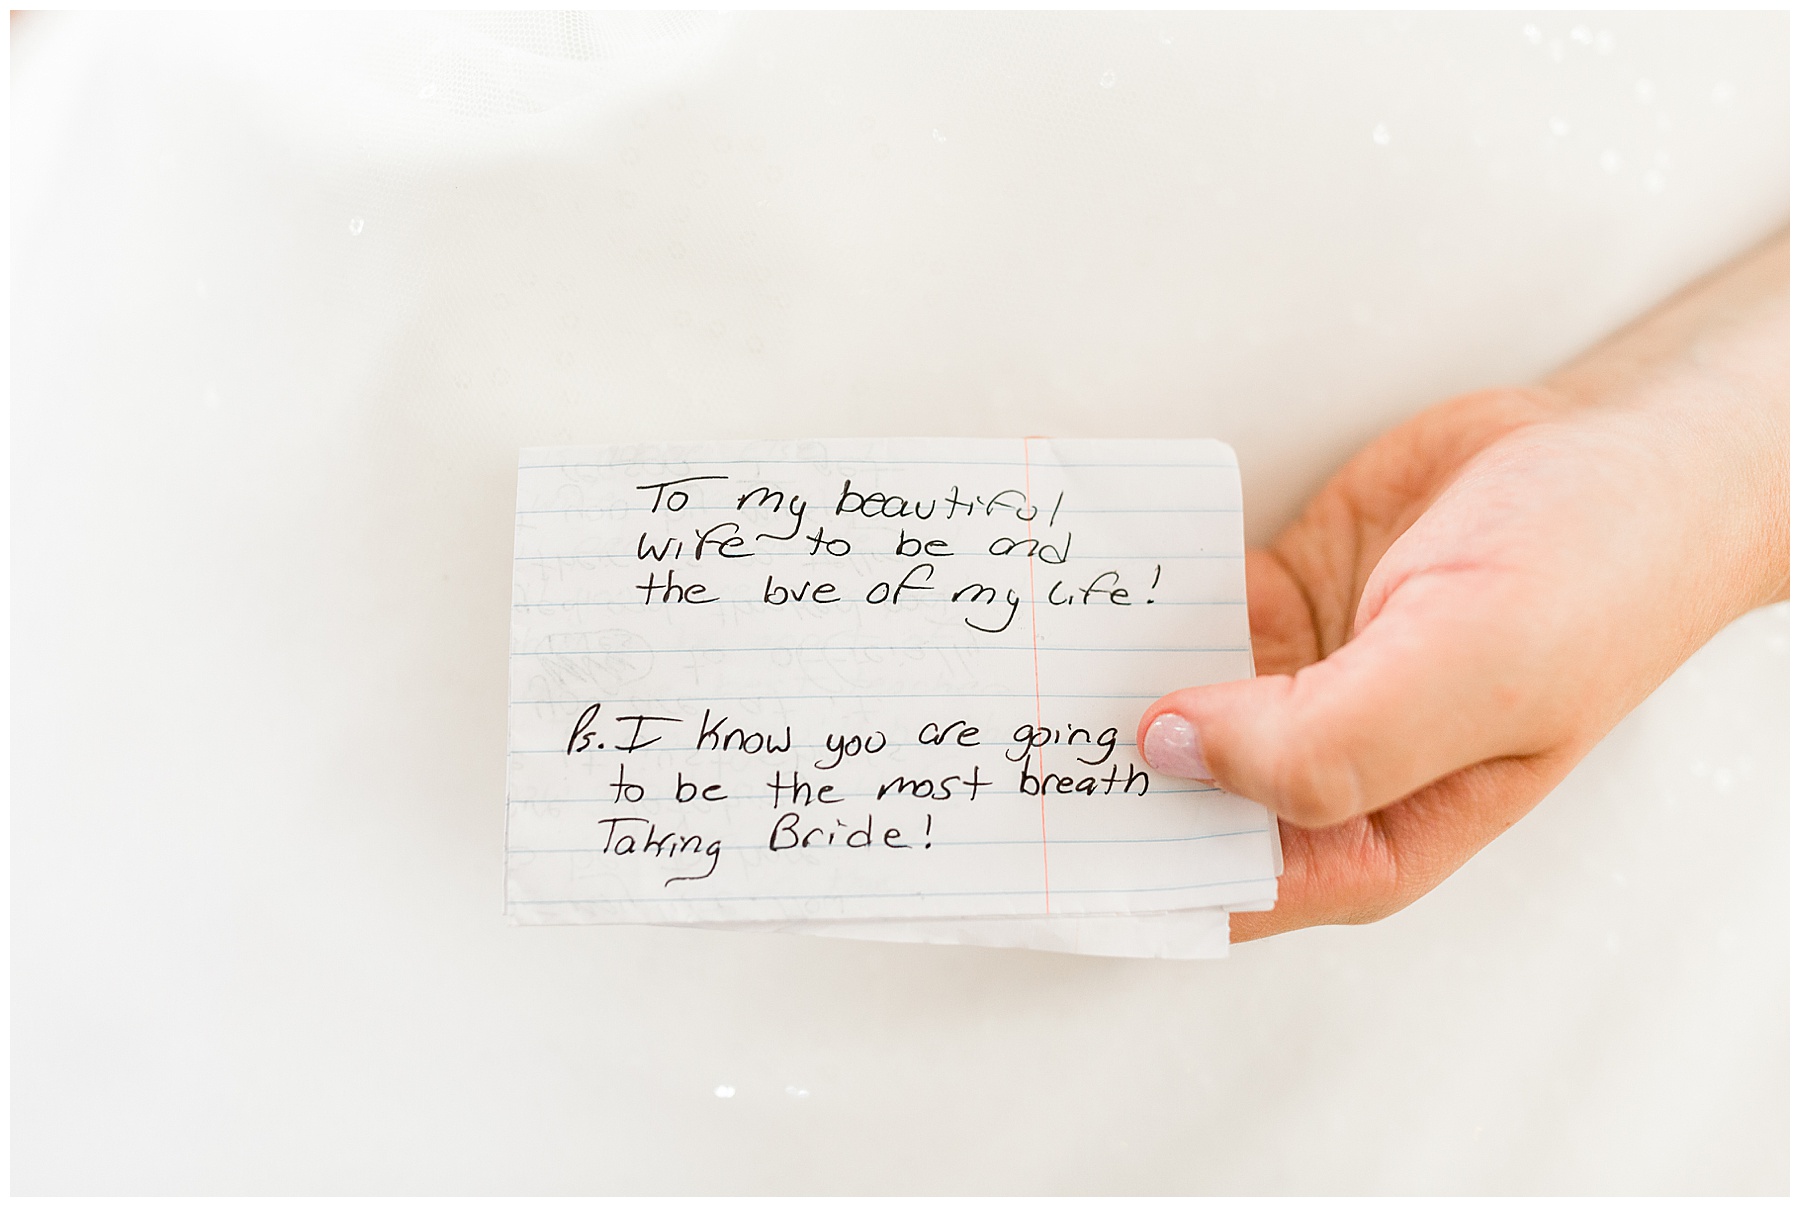 To my beautiful
wife to be and
the love of my life!
Ps. I know you are going
to be the most breath
Taking Bride!